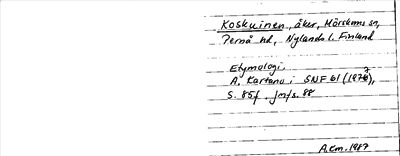 Koskuinen, åker, Mörskoms sn,
Pernå hd, Nylands l. Finland
Etymologi:
A. Kartano i SNF 61 (1979),
S. 85f. jmfs. 88
A.Km. 1987